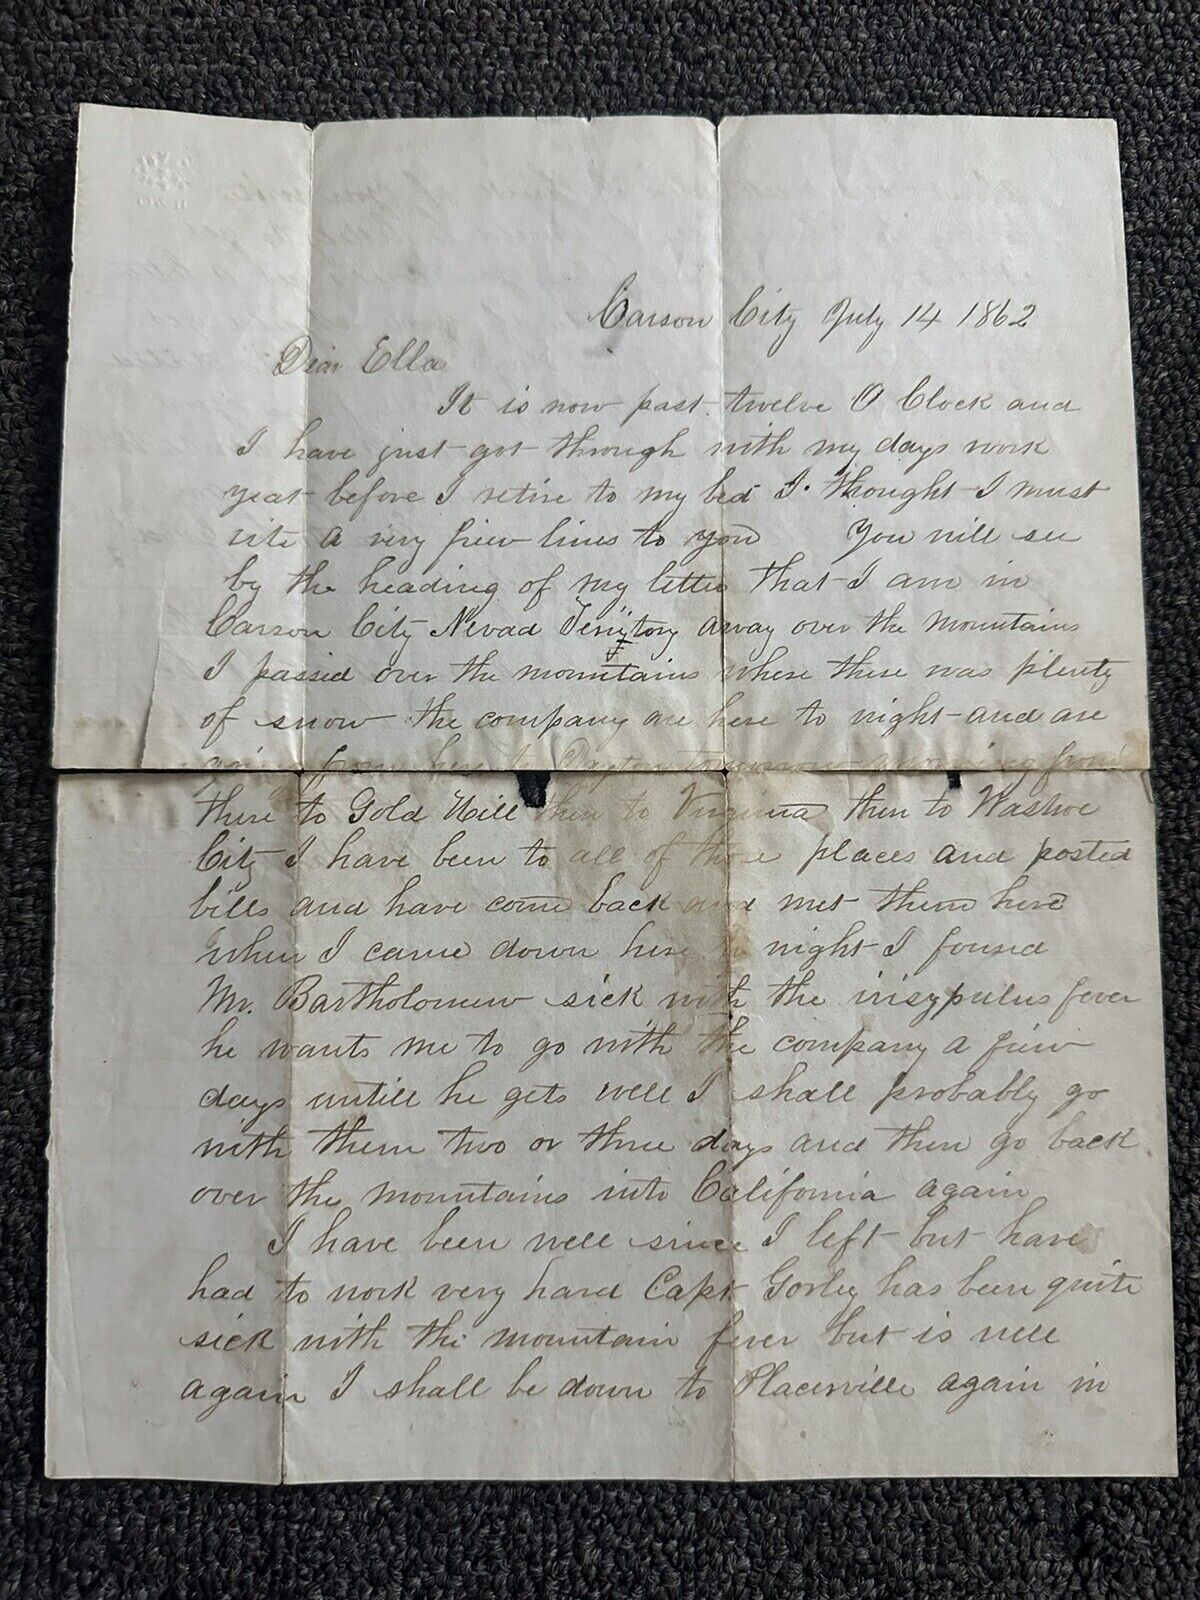 Carson City July 14 1862
Dear Ella
It is now past twelve O Clock and
I have just got through with my days work
yeat before I retire to my bed I thought I must
rite a very fiew lines to you You will see
by the heading of my letter that I am in
Carson City Nevad Territory away over the mountains
I passed over the mountains where there was plenty
of snow the company are here to night and are
going from here to Dayton tomorrow morning from
there to Gold Hill then to Virginia then to Washoe
City I have been to all of those places and posted
bills and have come back and met them here
when I came down here to night I found
Mr. Bartholomew sick with the irisypulus fever
he wants me to go with the company a fiew
days untill he gets well I shall probably go
with them two or three days and then go back
over the mountains into California again
I have been well since I left but have
had to work very hard Capt Gorley has been quite
sick with the mountain fever but is well
again I shall be down to Placerville again in